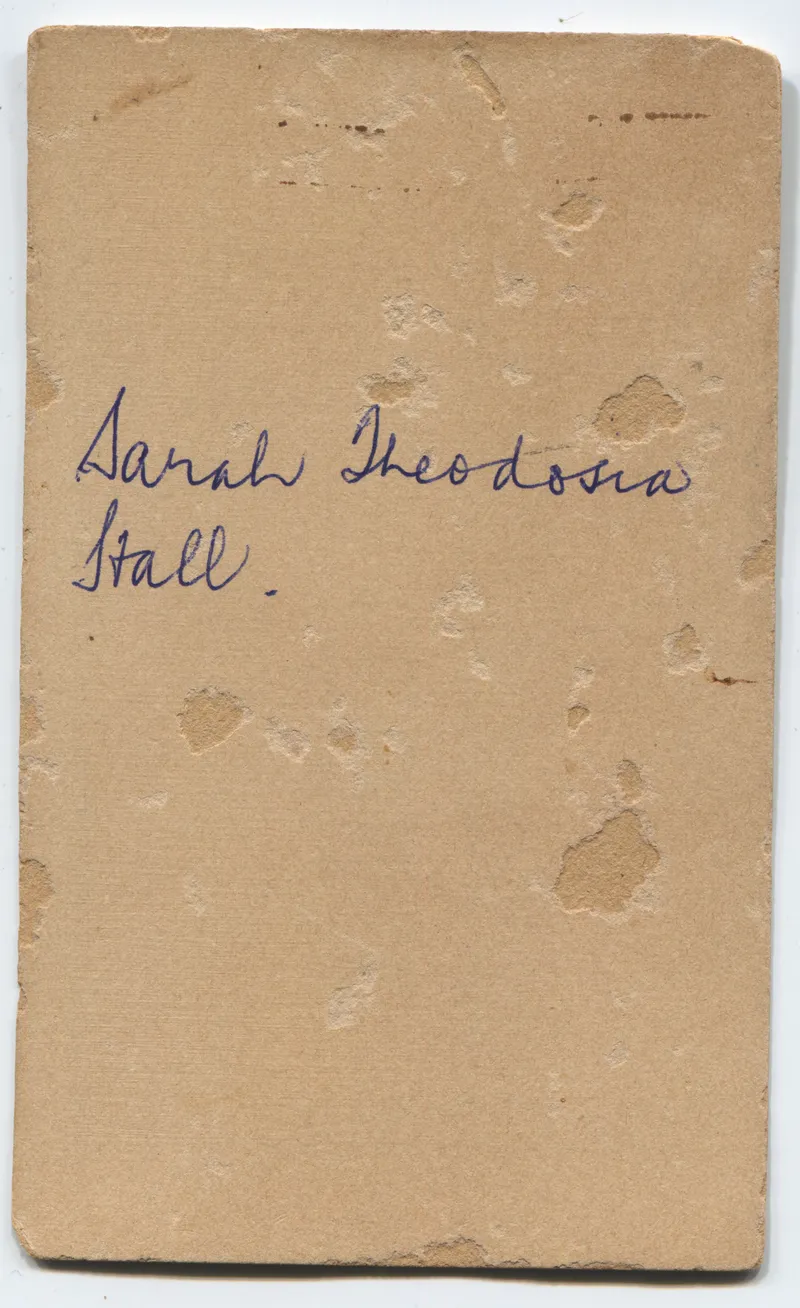 Sarah Theodosia
Stall.